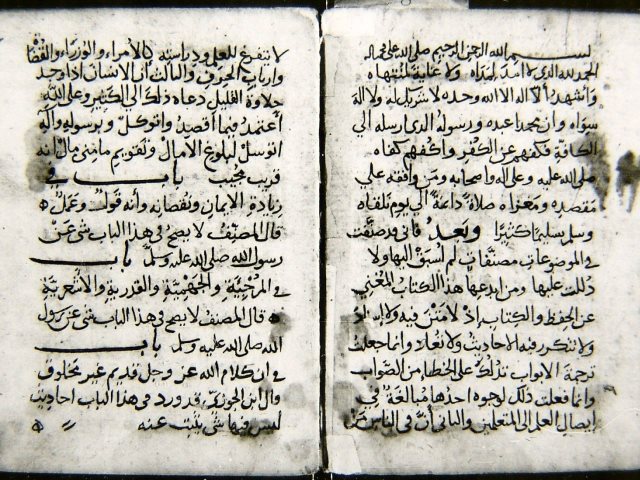 بسم الله الرحمن الرحيم صلى الله على محمد
الحمد لله الذي لا أمد لمداه ولا غاية لمنتهاه
وأشهد أن لا اله الا الله وحده لا شريك له ولا اله
سواه وان محمدا عبده ورسوله الذي ارسله الي
الكافة فكفهم عن الكفر واكفهم كفاه
صلى الله عليه وعلى اله واصحابه ومن وافقه علي
مقصده ومغزاه صلاة دائمة الي يوم نلقاه
وسلم تسليما كثيرا وبعد فاني قد صنفت
في الموضوعات مصنفات لم اسبق اليها ولا
دللت عليها ومن ابدعها هذا الكتاب المغني
عن الحفظ والكتاب اذ لا متن فيه ولا اسناد
ولا تتكرر فيه الاحاديث ولا تعاد وانما جعلت
ترجمة الابواب تدلك على الخطا من الصواب
وانما فعلت ذلك لوجوه احدها مبالغة في
ايصال العلم الى المتعلمين والثاني أن في الناس من
لا يتفرغ للعلم ودراسته كالأمراء والوزراء والقضاة
وارباب الحرف والثالث أن الانسان اذا وجد
حلاوة القليل دعاه ذلك الى الكثير وعلى الله
أعتمد فيما أقصد واتوكل وبرسوله وآله
اتوسل لبلوغ الآمال وتقويم ما مني مال انه
قريب مجيب باب في
زيادة الايمان ونقصانه وأنه قول وعمل
قال المصنف لا يصح في هذا الباب شي عن
رسول الله صلى الله عليه وسلم باب
في المرجية والجهمية والقدرية والأشعرية
قال المصنف لا يصح في هذا الباب شي عن رسول
الله صلى الله عليه وسلم باب
في ان كلام الله عز وجل قديم غير مخلوق
قال ابن الجوزي قد ورد في هذا الباب احاديث
ليس فيها شي يثبت عنه